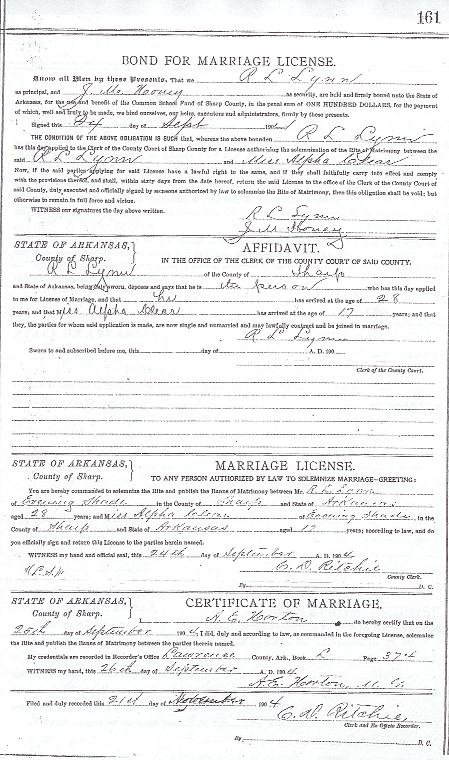 161
BOND FOR MARRIAGE LICENSE.
Know all Men by these Presents, That we R L Lynn
as principal, and J. M. Hooney as security, are held and firmly bound unto the State of
Arkansas, for the use and benefit of the Common School Fund of Sharp County, in the penal sum of ONE HUNDRED DOLLARS, for the payment
of which, well and truly to be made, we bind ourselves, our heirs, executors and administrators, firmly by these presents.
Signed this 24 day of Sept 190
THE CONDITION OF THE ABOVE OBLIGATION IS SUCH, that whereas the above bounden R L Lynn
has this day applied to the Clerk of the County Court of Sharp County for a License authorizing the solemnization of the Rite of Matrimony between the
said R L Lynn and Miss Alpha
Now, if the said parties applying for said License have a lawful right to the same, and if they shall faithfully carry into effect and comply
with the provisions thereof, and shall, within sixty days from the date hereof, return the said License to the office of the Clerk of the County Court of
said County, duly executed and officially signed by someone authorized by law to solemnize the Rite of Matrimony, then this obligation shall be void; but
otherwise to remain in full force and virtue.
WITNESS our signatures the day above written.
R L Lynn
J M Hooney
STATE OF ARKANSAS,
County of Sharp.
AFFIDAVIT.
IN THE OFFICE OF THE CLERK OF THE COUNTY COURT OF SAID COUNTY.
R L Lynn of the County of Sharp
and State of Arkansas, being duly sworn, deposes and says that he is the person who has this day applied
to me for Marriage License, and that he has arrived at the age of 28
years; and that Miss Alpha has arrived at the age of 17 years; and that
they, the parties for whom said application is made, are now single and unmarried and may lawfully contract and be joined in marriage.
R L Lynn
Sworn to and subscribed before me, this day of A. D. 190
Clerk of the County Court.
STATE OF ARKANSAS,
County of Sharp.
MARRIAGE LICENSE.
TO ANY PERSON AUTHORIZED BY LAW TO SOLEMNIZE MARRIAGE—GREETING:
You are hereby commanded to solemnize the Rite and publish the Banns of Matrimony between Mr. R L Lynn
of Evening Shade in the County of Sharp and State of Arkansas
aged 28 years; and Miss Alpha of Evening Shade in the
County of Sharp and State of Arkansas aged 17 years; according to law, and do
you officially sign and return this License to the parties herein named.
WITNESS my hand and official seal, this 24th day of September A. D. 1904
C. D. Ritchie
County Clerk.
By D. C.
STATE OF ARKANSAS,
County of Sharp.
CERTIFICATE OF MARRIAGE.
I, N. E. Horton do hereby certify that on the
25th day of September 1904, I did, duly and according to law, as commanded in the foregoing License, solemnize
the Rite and publish the Banns of Matrimony between the parties therein named.
My credentials are recorded in Recorder's Office Lawrence County, Ark., Book L Page 374
WITNESS my hand, this 26th day of September A. D. 1904
N. E. Horton, M. G.
Filed and duly recorded this 21st day of November 1904
C. D. Ritchie,
Clerk and Ex Officio Recorder.
By D. C.